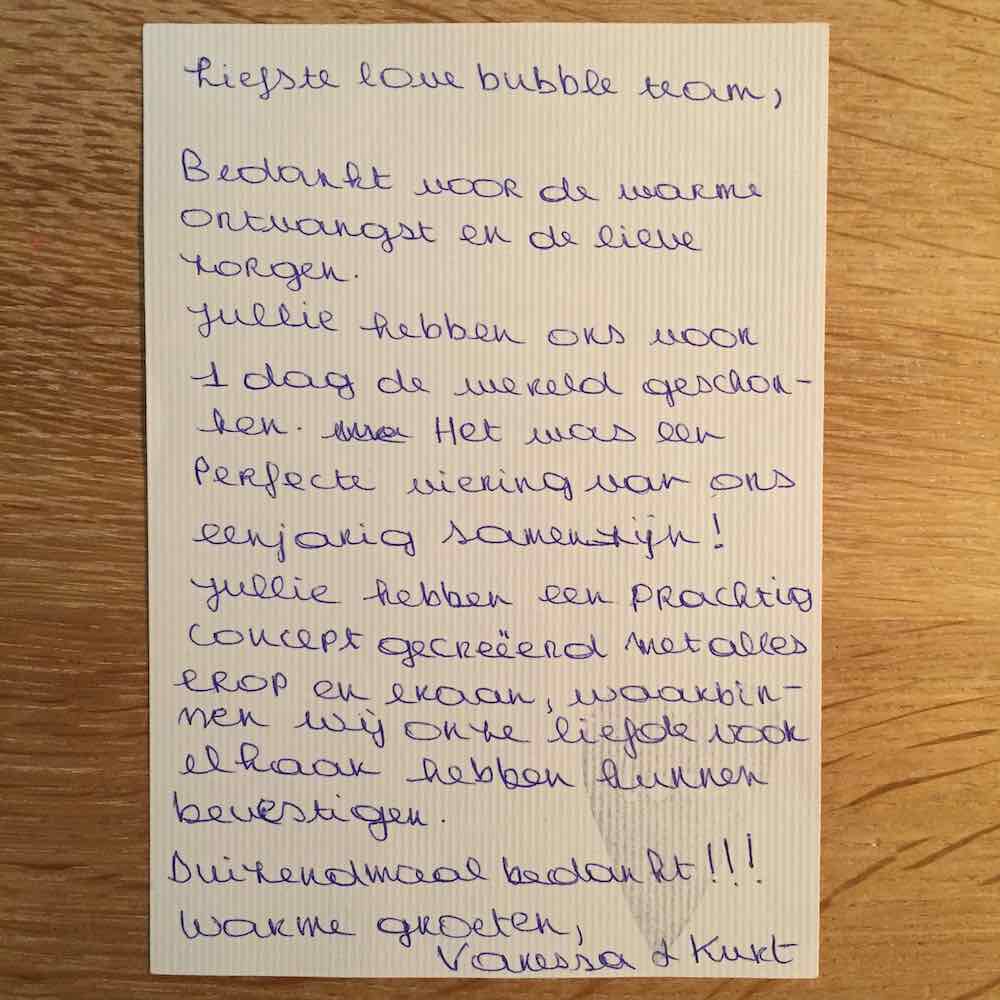 Liefste love bubble team,
Bedankt voor de warme
ontvangst en de lieve
zorgen.
Jullie hebben ons voor
1 dag de wereld geschon-
ken. Het was een
perfecte viering van ons
eenjarig samenzijn!
Jullie hebben een prachtig
concept gecreëerd met alles
erop en eraan, waarbin-
nen wij onze liefde voor
elkaar hebben kunnen
bevestigen.
Duizendmaal bedankt!!!
Warme groeten,
Vanessa & Kurt